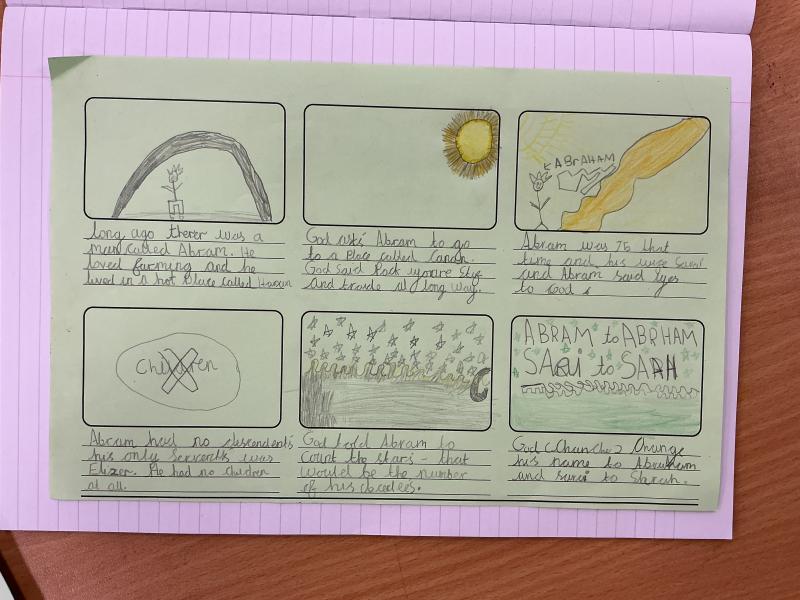 ABRAHAM
long ago therer was a
man called Abram. He
loved farming and he
lived in a hot place called Harran
God asks Abram to go
to a Place called Canan.
God said Pack your
and a long way.
Abram was 75 that
time and his wife Sarai
and Abram said yes
to God
Children
Abram had no descendents
his only servents was
Eliezer. He had no children
at all.
God told Abram to
count the stars - that
would be the number
of his
ABRAM to ABRHAM
SARI to SARAH
God Change
his name to Abraham
and sarai to Sarah.